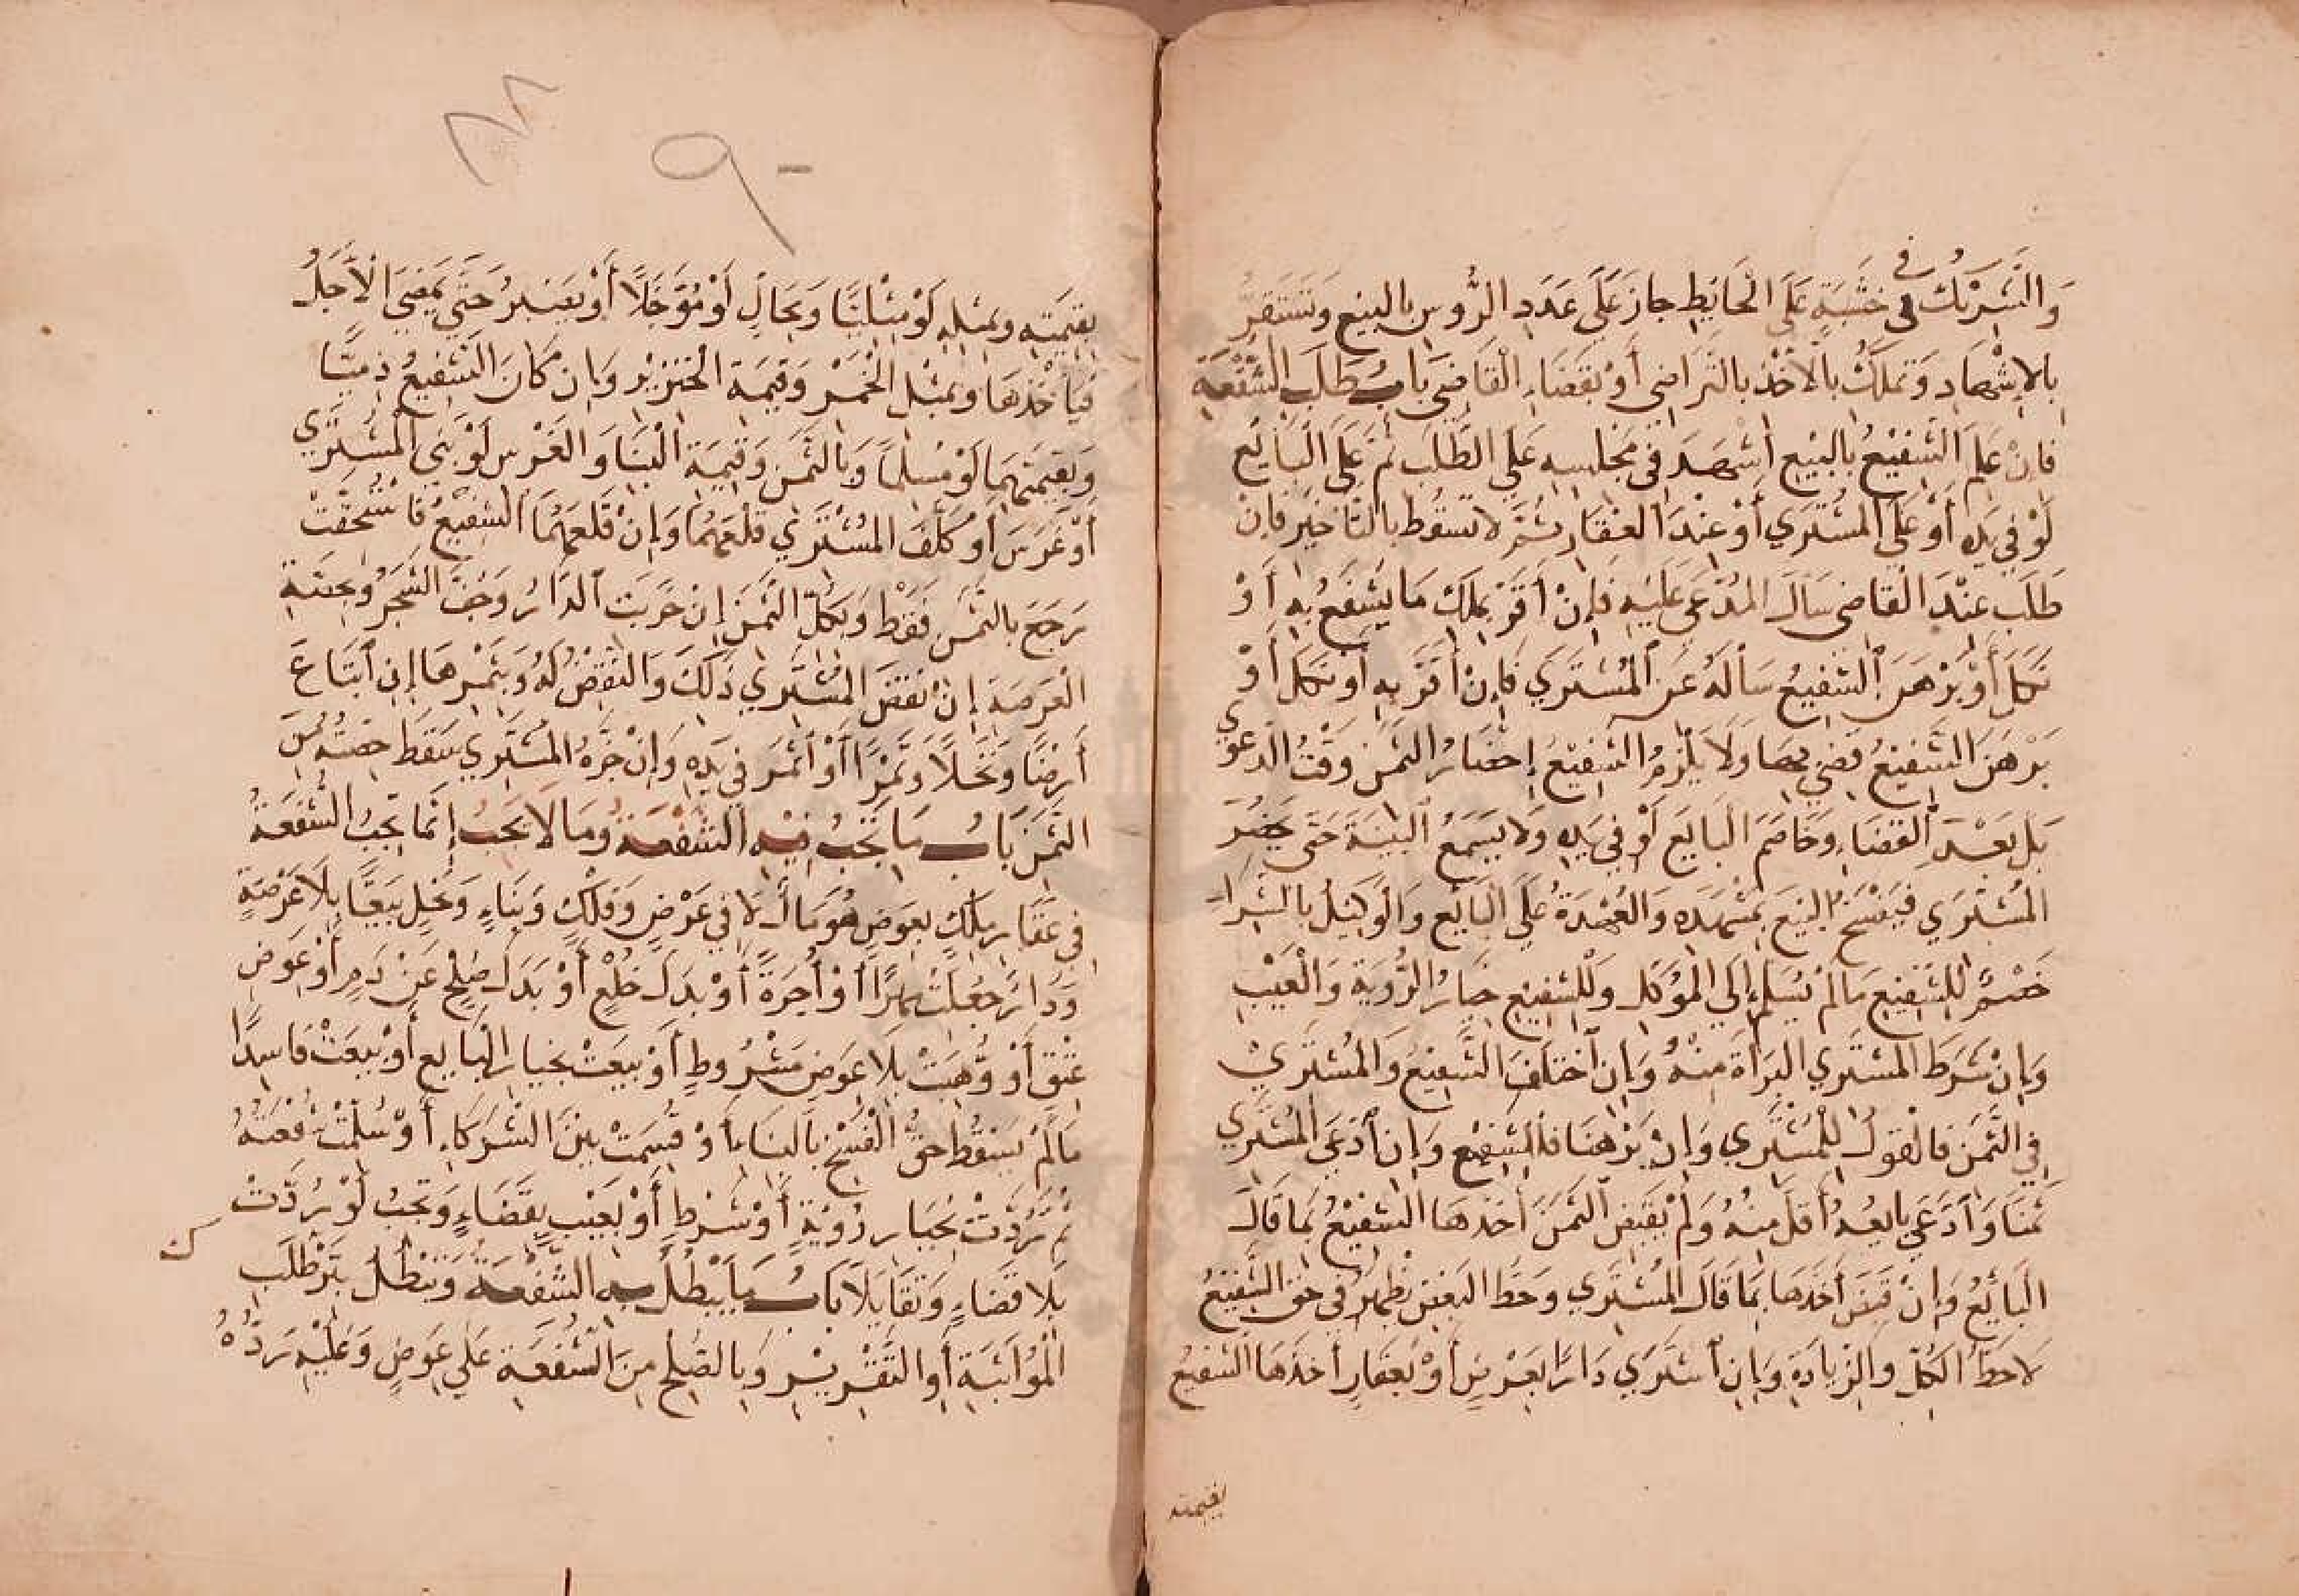 وَالشَّرِيكُ فِي خَشَبَةٍ عَلَى الْحَائِطِ جَارٌ عَلَى عَدَدِ الرُّوسِ بِالبَيْعِ وَتَسْتَقِرُّ
بِالإِشْهَادِ وَتُمْلَكُ بِالأَخْذِ بِالتَّرَاضِي أَوْ بِقَضَاءِ الْقَاضِي بَابُ طَلَبِ الشُّفْعَةِ
فَإِنْ عَلِمَ الشَّفِيعُ بِالبَيْعِ أَشْهَدَ فِي مَجْلِسِهِ عَلَى الطَّلَبِ ثُمَّ عَلَى الْبَائِعِ
لَوْ فِي يَدِهِ أَوْ عَلَى الْمُشْتَرِي أَوْ عِنْدَ الْعَقَارِ ثُمَّ لَا تَسْقُطُ بِالتَّأْخِيرِ فَإِنْ
طَلَبَ عِنْدَ الْقَاضِي سَأَلَ الْمُدَّعَى عَلَيْهِ فَإِنْ أَقَرَّ بِمِلْكِ مَا يَشْفَعُ بِهِ أَوْ
نَكَلَ أَوْ بَرْهَنَ الشَّفِيعُ سَأَلَهُ عَنِ الْمُشْتَرِي فَإِنْ أَقَرَّ بِهِ أَوْ نَكَلَ أَوْ
بَرْهَنَ الشَّفِيعُ قُضِيَ بِهَا وَلَا يَلْزَمُ الشَّفِيعَ إِحْضَارُ الثَّمَنِ وَقْتَ الدَّعْوَى
بَلْ بَعْدَ الْقَضَاءِ وَخَاصَمَ الْبَائِعَ لَوْ فِي يَدِهِ وَلَا يَسْمَعُ الْبَيِّنَةَ حَتَّى يَحْضُرَ
الْمُشْتَرِي فَيَفْسَخُ الْبَيْعَ بِمَشْهَدِهِ وَالْعُهْدَةُ عَلَى الْبَائِعِ وَالْوَكِيلُ بِالشِّرَاءِ
خَصْمٌ لِلشَّفِيعِ مَا لَمْ يُسَلِّمْ إِلَى الْمُوَكِّلِ وَلِلشَّفِيعِ خِيَارُ الرُّؤْيَةِ وَالْعَيْبِ
وَإِنْ شَرَطَ الْمُشْتَرِي الْبَرَاءَةَ مِنْهُ وَإِنِ اخْتَلَفَ الشَّفِيعُ وَالْمُشْتَرِي
فِي الثَّمَنِ فَالْقَوْلُ لِلْمُشْتَرِي وَإِنْ بَرْهَنَا فَلِلشَّفِيعِ وَإِنِ ادَّعَى الْمُشْتَرِي
ثَمَنًا وَادَّعَى بَايِعُهُ أَقَلَّ مِنْهُ وَلَمْ يَقْبِضِ الثَّمَنَ أَخَذَهَا الشَّفِيعُ بِمَا قَالَ
الْبَائِعُ وَإِنْ قَبَضَ أَخَذَهَا بِمَا قَالَ الْمُشْتَرِي وَحَطُّ الْبَعْضِ يَظْهَرُ فِي حَقِّ الشَّفِيعِ
لَا حَطُّ الْكُلِّ وَالزِّيَادَةِ وَإِنِ اشْتَرَى دَارًا بِعَرْضٍ أَوْ بِعَقَارٍ أَخَذَهَا الشَّفِيعُ
بقيمته
٩٠
بِقِيمَتِهِ وَبِمِثْلِهِ لَوْ مِثْلِيًّا وَبِحَالٍ لَوْ مُؤَجَّلًا أَوْ يَصْبِرُ حَتَّى يَمْضِيَ الْأَجَلُ
فَيَأْخُذُهَا وَبِمِثْلِ الْخَمْرِ وَقِيمَةِ الْخِنْزِيرِ وَإِنْ كَانَ الشَّفِيعُ ذِمِّيًّا
وَبِقِيمَتِهِمَا لَوْ مُسْلِمًا وَبِالثَّمَنِ وَقِيمَةِ الْبِنَا وَالْغَرْسِ لَوْ بَنَى الْمُشْتَرِي
أَوْ غَرَسَ أَوْ كَلَّفَ الْمُشْتَرِي قَلْعَهُمَا وَإِنْ قَلَعَهُمَا الشَّفِيعُ فَاسْتُحِقَّتْ
رَجَعَ بِالثَّمَنِ فَقَطْ وَبِكُلِّ الثَّمَنِ إِنْ خَرِبَتِ الدَّارُ وَجَفَّ الشَّجَرُ وَبِحِصَّةِ
الْعَرْصَةِ إِنْ نَقَضَ الْمُشْتَرِي ذَلِكَ وَالنَّقْضُ لَهُ وَبِثَمَرِهَا إِنِ ابْتَاعَ
أَرْضًا وَنَخْلًا وَثَمَرًا أَوْ أَثْمَرَ فِي يَدِهِ وَإِنْ جَزَّهُ الْمُشْتَرِي سَقَطَ حِصَّتُهُ مِنَ
الثَّمَنِ بَابُ مَا تَجِبُ فِيهِ الشُّفْعَةُ وَمَا لَا يَجِبُ إِنَّمَا تَجِبُ الشُّفْعَةُ
فِي عَقَارٍ مُلِكَ بِعِوَضٍ هُوَ مَالٌ لَا فِي عَرْضٍ وَفُلْكٍ وَبِنَاءٍ وَنَخْلٍ بِيعَا بِلَا عَرْصَةٍ
وَدَارٌ جُعِلَتْ مَهْرًا أَوْ أُجْرَةً أَوْ بَدَلَ خُلْعٍ أَوْ بَدَلَ صُلْحٍ عَنْ دَمٍ أَوْ عِوَضَ
عِتْقٍ أَوْ وُهِبَتْ بِلَا عِوَضٍ مَشْرُوطٍ أَوْ بِيعَتْ بِخِيَارِ الْبَايِعِ أَوْ بِيعَتْ فَاسِدًا
مَا لَمْ يَسْقُطْ حَقُّ الْفَسْخِ بِالْبِنَاءِ أَوْ قُسِمَتْ بَيْنَ الشُّرَكَاءِ أَوْ سُلِّمَتْ شُفْعَتُهُ
ثُمَّ رُدَّتْ بِخِيَارِ رُؤْيَةٍ أَوْ شَرْطٍ أَوْ بِعَيْبٍ بِقَضَاءٍ وَتَجِبُ لَوْ رُدَّتْ
بِلَا قَضَاءٍ وَتَقَايَلَا بَابُ مَا يَبْطُلُ بِهِ الشُّفْعَةُ وَتَبْطُلُ بِتَرْكِ طَلَبِ
الْمُوَاثَبَةِ أَوِ التَّقْرِيرِ وَبِالصُّلْحِ مِنَ الشُّفْعَةِ عَلَى عِوَضٍ وَعَلَيْهِ رَدُّهُ